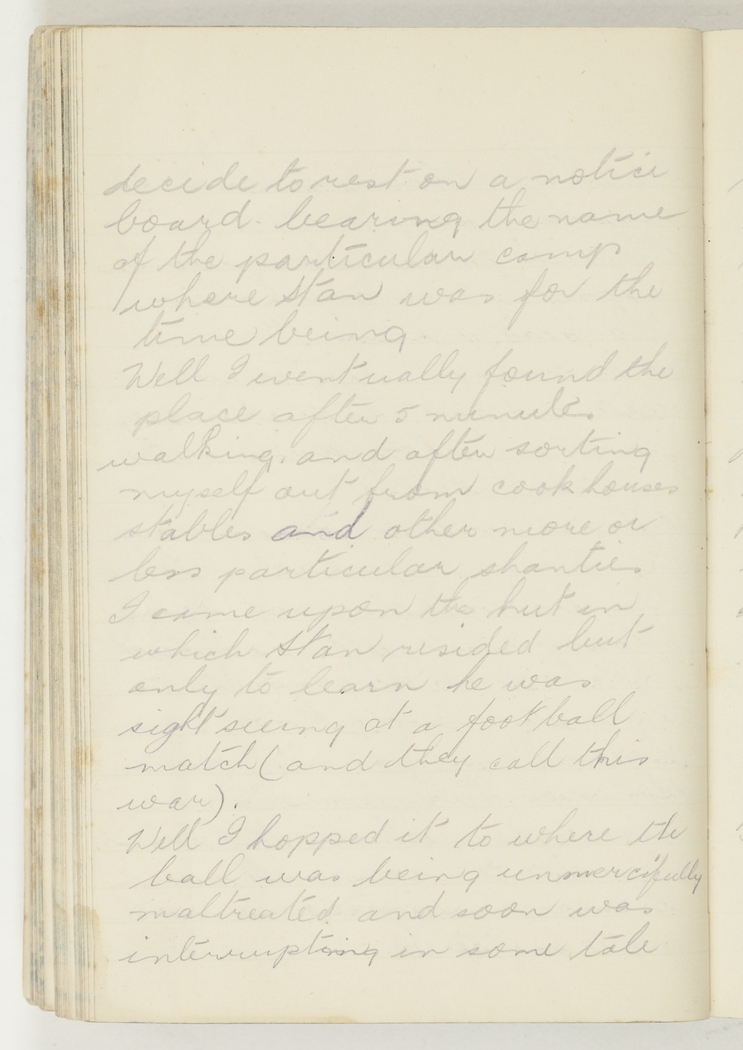 decide to rest on a notice
board. bearing the name
of the particular camp
where Stan was for the
time being.
Well I eventually found the
place after 5 minutes
walking. and after sorting
myself out from cookhouses
stables and other more or
less particular shanties
I came upon the hut in
which Stan resided but
only to learn he was
sight seeing at a football
match (and they call this
war).
Well I hopped it to where the
ball was being unmercifully
maltreated and soon was
interrupting in some tale